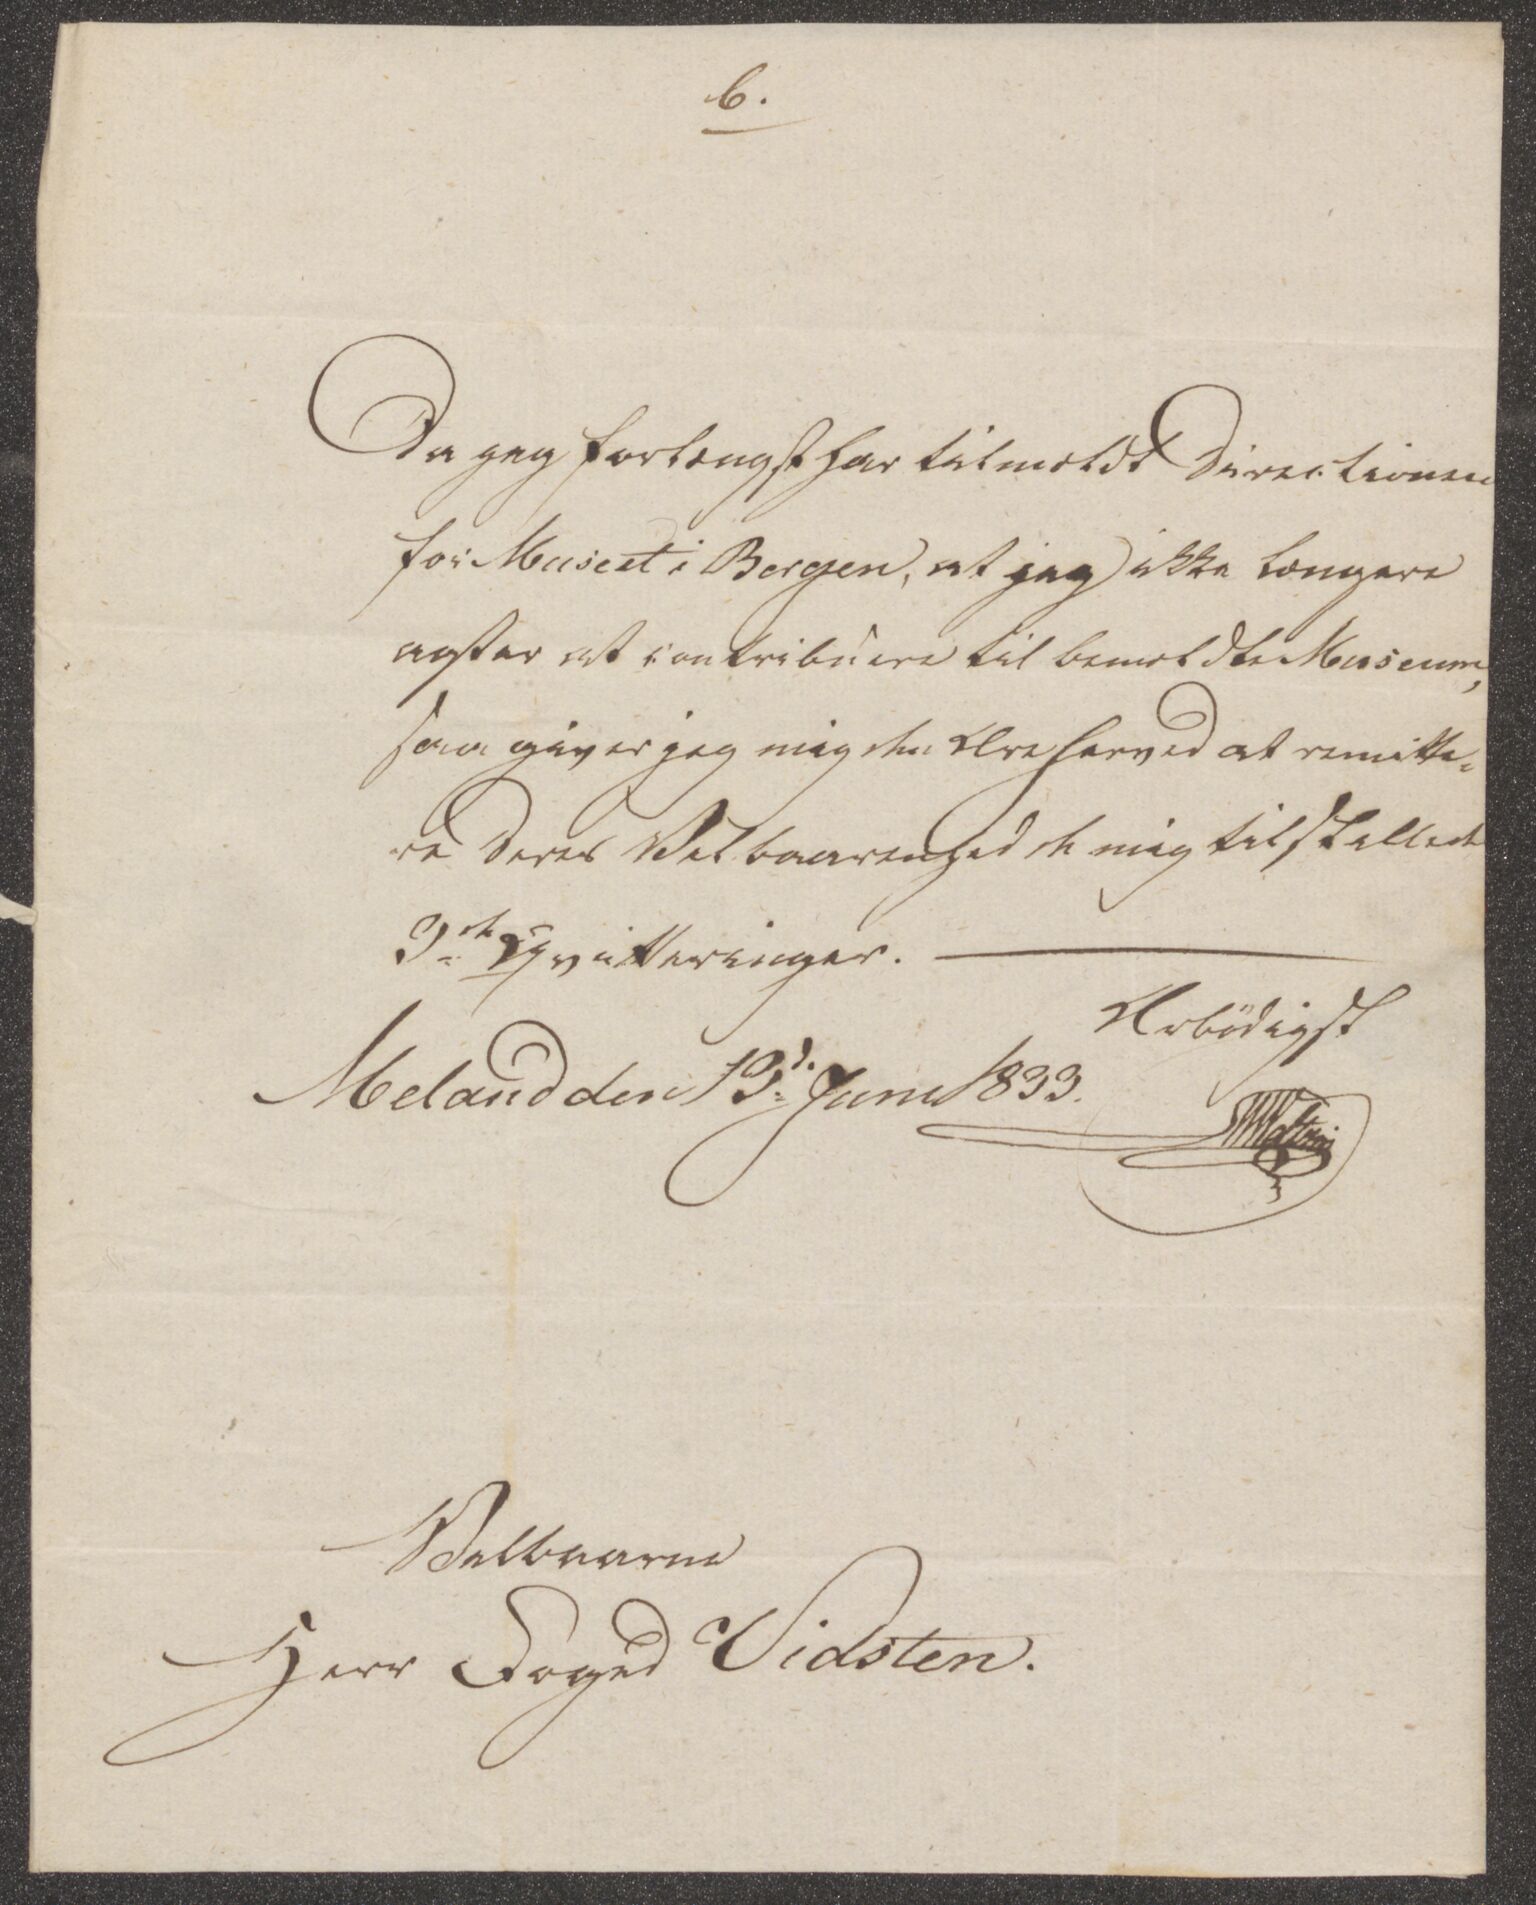 6.
Da jeg forlængst har tilmeldt Directionen
for Museet i Bergen, at jeg ikke længere
agter at contribuere til bemeldte Museum,
saa giver jeg mig den Ære herved at remitte-
re Deres Velbaarenhed de mig tilstillede
3de Qvitteringer.
Ærbödigst
Meland den 13d. Juni 1833.
Velbaarne
Herr Foged Vidsten.